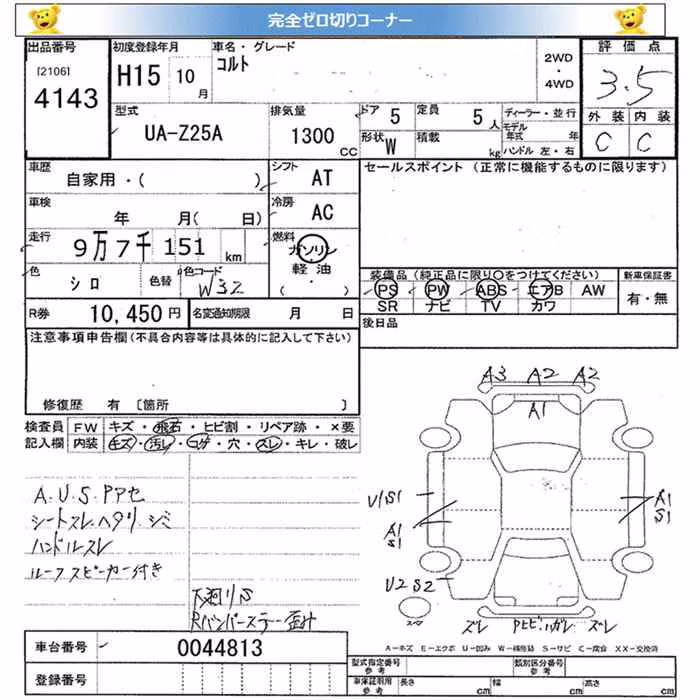 完全ゼロ切りコーナー
出品番号
[2106]
4143
初度登録年月
H15 10月
車名・グレード
コルト
2WD
・
4WD
評価点
3.5
外装 内装
C C
型式
UA-Z25A
排気量
1300 CC
ドア 5
定員 5人
形状 W
積載 kg
ディーラー・並行
モデル年式 年
ハンドル 左・右
車歴
自家用・( )
シフト AT
車検
年 月( 日)
冷房 AC
走行
9万7千151 km
燃料
ガソリン
軽油
( ・ )
色
シロ
色替
色コード
W32
R券 10,450円
名変通知期限 月 日
セールスポイント (正常に機能するものに限ります)
装備品(純正品に限り○をつけてください)
新車保証書
PS PW ABS エアB AW
SR ナビ TV カワ
有・無
後日品
注意事項申告欄(不具合内容等は具体的に記入して下さい)
修復歴 有 〔箇所 〕
検査員記入欄
FW キズ・飛石・ヒビ割・リペア跡・×要
内装 キズ・汚レ・コゲ・穴・スレ・キレ・破レ
A.U.S.Pアセ
シートスレ ヘタリ シミ
ハンドルスレ
ルーフスピーカー付き
下廻りS
Rバンパーステー歪み
A3 A2 A2
A1
U1S1
A1
S1
A1
S1
U2 S2
ズレ Pヒビハガレ ズレ
A=キズ E=エクボ U=凹み W=補修跡 S=サビ C=腐食 XX=交換済
車台番号 0044813
登録番号
型式指定番号 参考
類別区分番号 参考
車庫証明用 参考
長さ cm
幅 cm
高さ cm